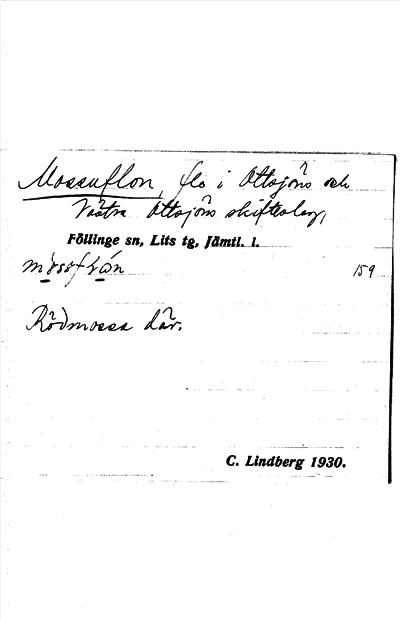 Mossuflon, flo i Ottsjöns och
Västra Ottsjöns skifteslag,
Föllinge sn, Lits tg, Jämtl. l.
159
Rödmossa där.
C. Lindberg 1930.